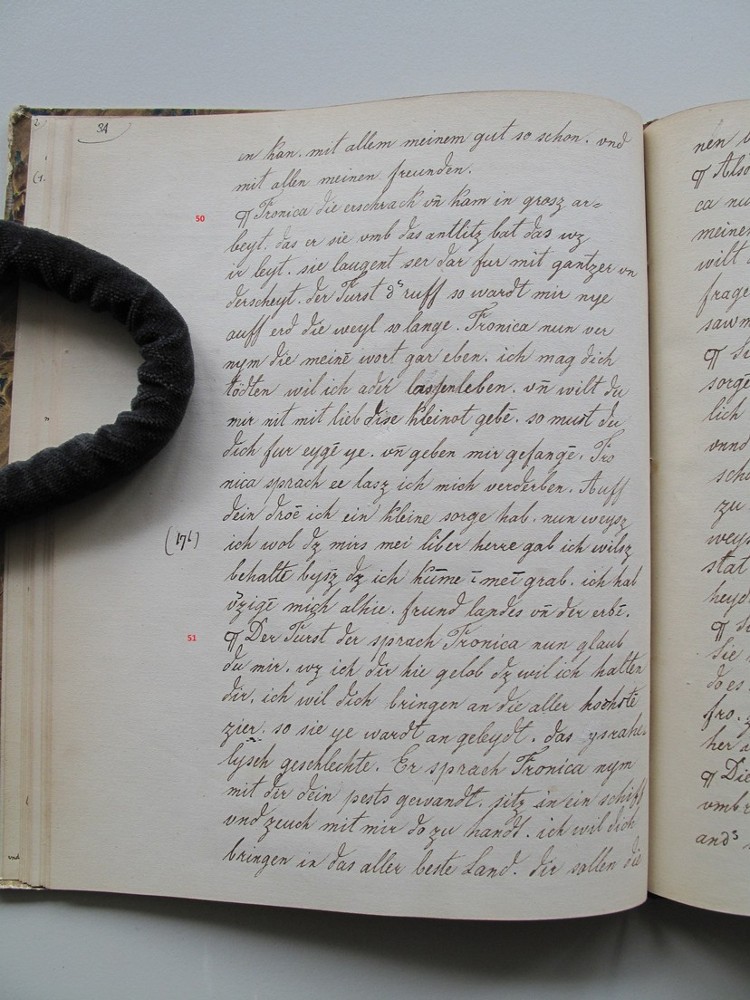 34
en kan. mit allem meinem gut so schon. vnd
mit allen meinen freunden.
50
¶ Fronica die erschrack vn̄ kam in grosz ar=
beyt. das er sie vmb das antlitz bat das wz
ir leyt. sie laugent ser dar fur mit gantzer vn
derscheyt. der Furst ds ruff so wardt mir nye
auff erd die weyl so lange. Fronica nun ver
nym die meinē wort gar eben. ich mag dich
tödten wil ich ader lassenleben. vn̄ wilt du
mir nit mit lieb dise kleinot gebē. so must du
dich fur eygē ye. vn̄ geben mir gefangē. Fro
nica sprach ee lasz ich mich verderben. Auff
dein droē ich ein kleine sorge hab. nun weysz
(17b)
ich wol dz mirs mei liber herre gab ich wilsz
behaltē bysz dz ich kūme ī meī grab. ich hab
v̄zige mich alhie. frund landes vn̄ der erbē.
51
¶ Der Furst der sprach Fronica nun glaub
du mir. wz ich dir hie gelob dz wil ich halten
dir. ich wil dich bringen an die aller hochstē
zier. so sie ye wardt an geleydt. das ysrahe-
lysch geschlechte. Er sprach Fronica nym
mit dir dein pests gewandt. sitz in ein schiff
vnd zeuch mit mir do zu handt. ich wil dich
bringen in das aller beste Land. dir sollen die
nen
¶ Also
ca nu
meinen
wilt
frage
sorge
lich
vnnd
zu
stat
heyd
do es
fro.
her
¶ Die
vmb
ands
vnd